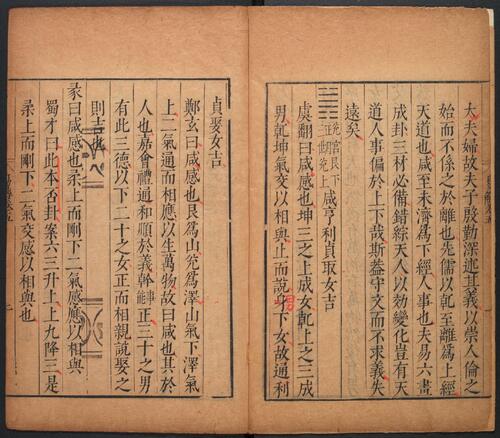 大夫婦故夫子殷勤深述其義以崇人倫之
始而不係之於離也先儒以乾至離為上經
天道也咸至未濟為下經人事也夫易六畫
成卦三材必備錯綜天人以効變化豈有天
道人事偏於上下哉斯葢守文而不求義失
遠矣
兊宮艮下
世兊上
咸亨利貞取女吉
虞翻曰咸感也坤三之上成女乾上之三成
男乾坤氣交以相與止而說男下女故通利
貞娶女吉
鄭玄曰咸感也艮為山兊為澤山氣下澤氣
上二氣通而相應以生萬物故曰咸也其於
人也嘉會禮通和順於義幹事能正三十之男
有此三德以下二十之女正而相親說娶之
則吉也
彖曰咸感也柔上而剛下二氣感應以相與
蜀才曰此本否卦案六三升上上九降三是
柔上而剛下二氣交感以相與也